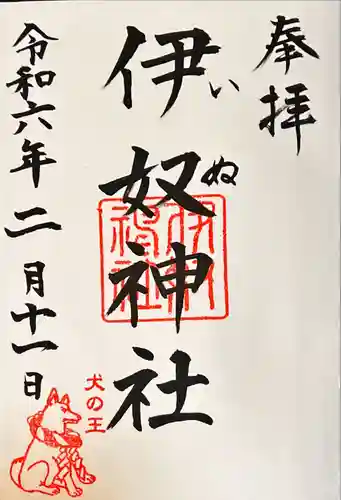 奉拝
伊奴神社
いぬ
伊奴神社
令和六年二月十一日
犬の王